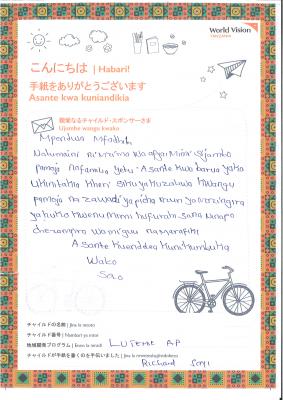 World Vision
TANZANIA
こんにちは | Habari!
手紙をありがとうございます
Asante kwa kuniandikia
親愛なるチャイルド・スポンサーさま
Ujumbe wangu kwako
Mpendwa Mfadhili
Natumaini ni mzima wa afya Mimi sijambo
pamoja na familia yetu. Asante kwa barua yako
ukinitakia kheri siku ya kuzaliwa kwangu
pamoja na zawadi ya picha nzuri ya mazingira
ya huko kwenu mimi hufurahi sana ninapo
cheza mpira wa miguu na marafiki
Asante kuendelea kunikumbuka
Wako
チャイルドの名前 | Jina la mtoto
チャイルド番号 | Nambari ya mtoto
地域開発プログラム | Eneo la mradi LUTEME AP
チャイルドが手紙を書くのを手伝いました | Jina la mwanafamilia/mfanyakazi
Richard